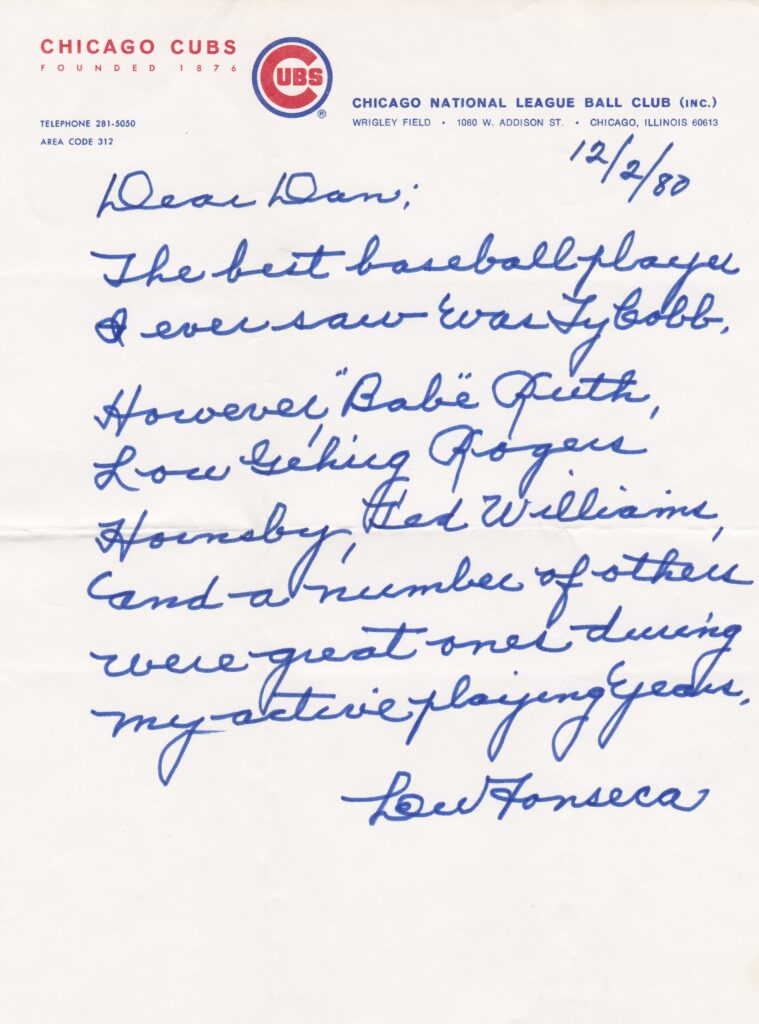 CHICAGO CUBS
FOUNDED 1876
CUBS
®
TELEPHONE 281-5050
AREA CODE 312
CHICAGO NATIONAL LEAGUE BALL CLUB (INC.)
WRIGLEY FIELD • 1060 W. ADDISON ST. • CHICAGO, ILLINOIS 60613
12/2/80
Dear Dan;
The best baseball player
I ever saw was Ty Cobb.
However, "Babe" Ruth,
Lou Gehrig Rogers
Hornsby, Ted Williams,
and a number of others
were great ones during
my active playing years.
Lew Fonseca